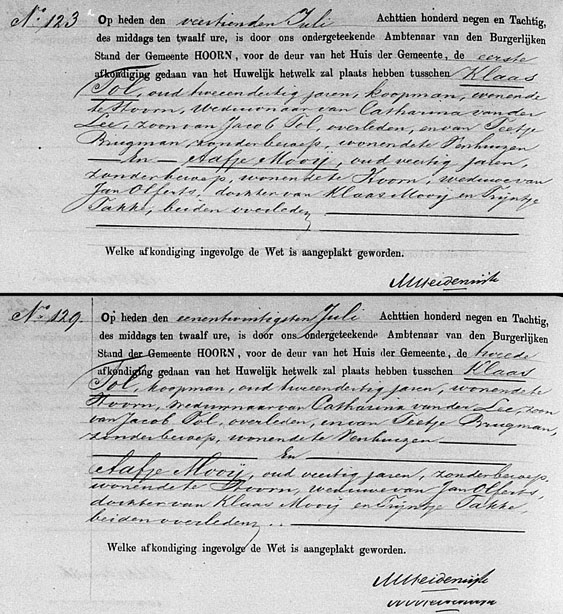 No. 123
Op heden den veertienden Juli Achttien honderd negen en Tachtig,
des middags ten twaalf ure, is door ons ondergeteekende Ambtenaar van den Burgerlijken
Stand der Gemeente HOORN, voor de deur van het Huis der Gemeente, de eerste
afkondiging gedaan van het Huwelijk hetwelk zal plaats hebben tusschen Klaas
Tol, oud tweeendertig jaren, koopman, wonende
te Hoorn, weduwnaar van Catharina van der
Lee, zoon van Jacob Tol, overleden, en van Teetje
Brugman, zonder beroep, wonende te Venhuizen
— En — Aafje Mooij, oud veertig jaren,
zonder beroep, wonende te Hoorn, weduwe van
Jan Olferts, dochter van Klaas Mooij en Trijntje
Takke, beiden overleden
Welke afkondiging ingevolge de Wet is aangeplakt geworden.
No. 129.
Op heden den eenentwintigsten Juli Achttien honderd negen en Tachtig,
des middags ten twaalf ure, is door ons ondergeteekende Ambtenaar van den Burgerlijken
Stand der Gemeente HOORN, voor de deur van het Huis der Gemeente, de tweede
afkondiging gedaan van het Huwelijk hetwelk zal plaats hebben tusschen Klaas
Tol, koopman, oud tweeendertig jaren, wonende te
Hoorn, weduwnaar van Catharina van der Lee, zoon
van Jacob Tol, overleden, en van Teetje Brugman,
zonder beroep, wonende te Venhuizen
En
Aafje Mooij, oud veertig jaren, zonder beroep,
wonende te Hoorn, weduwe van Jan Olferts,
dochter van Klaas Mooij en Trijntje Takke,
beiden overleden
Welke afkondiging ingevolge de Wet is aangeplakt geworden.